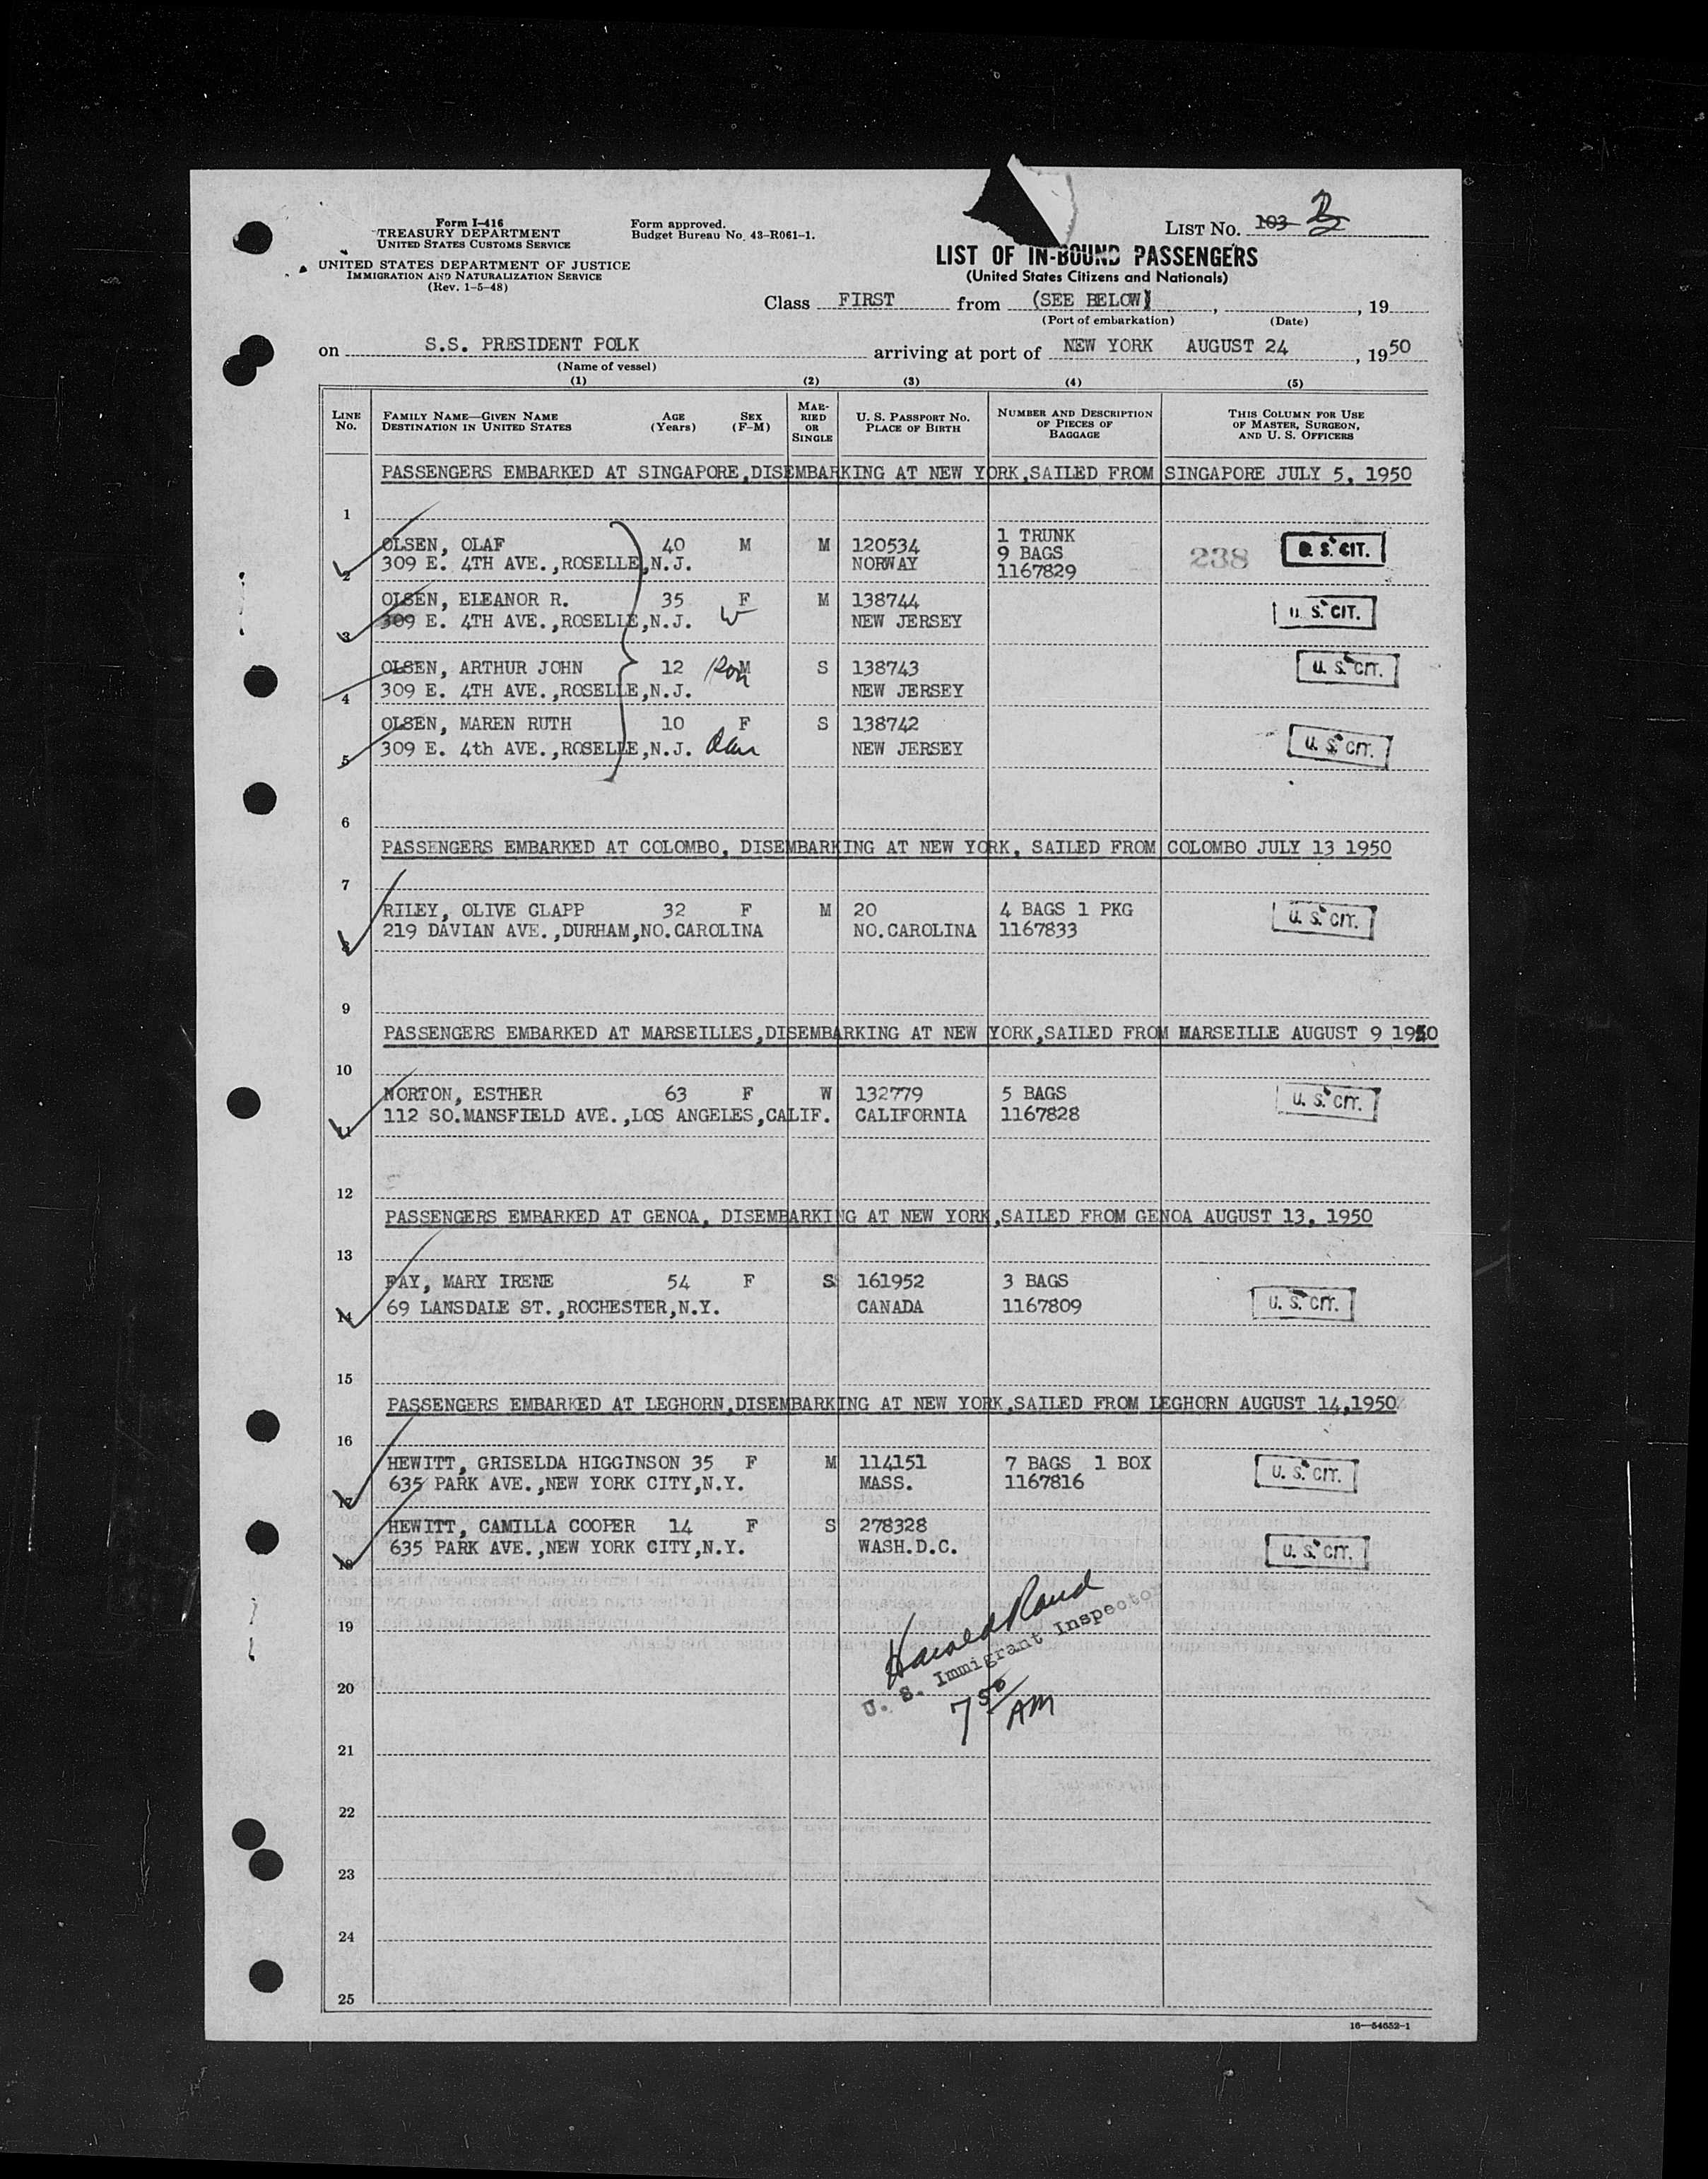 Form I-416
TREASURY DEPARTMENT
UNITED STATES CUSTOMS SERVICE
Form approved.
Budget Bureau No. 43-R061-1.
LIST NO. 103
UNITED STATES DEPARTMENT OF JUSTICE
IMMIGRATION AND NATURALIZATION SERVICE
(Rev. 1-5-48)
LIST OF IN-BOUND PASSENGERS
(United States Citizens and Nationals)
Class FIRST from (SEE BELOW) , , 19
(Port of embarkation) (Date)
on S.S. PRESIDENT POLK arriving at port of NEW YORK AUGUST 24 , 1950
(Name of vessel)
(1) (2) (3) (4) (5)
LINE No. FAMILY NAME—GIVEN NAME DESTINATION IN UNITED STATES AGE (Years) SEX (F-M) MARRIED OR SINGLE U. S. PASSPORT NO. PLACE OF BIRTH NUMBER AND DESCRIPTION OF PIECES OF BAGGAGE THIS COLUMN FOR USE OF MASTER, SURGEON, AND U. S. OFFICERS
PASSENGERS EMBARKED AT SINGAPORE,DISEMBARKING AT NEW YORK,SAILED FROM SINGAPORE JULY 5, 1950
1
OLSEN, OLAF 40 M M 120534 1 TRUNK 9 BAGS 238 U. S. CIT.
2 309 E. 4TH AVE.,ROSELLE,N.J. NORWAY 1167829
OLSEN, ELEANOR R. 35 F M 138744 U. S. CIT.
3 309 E. 4TH AVE.,ROSELLE,N.J. W NEW JERSEY
OLSEN, ARTHUR JOHN 12 M S 138743 U. S. CIT.
4 309 E. 4TH AVE.,ROSELLE,N.J. NEW JERSEY
OLSEN, MAREN RUTH 10 F S 138742
5 309 E. 4th AVE.,ROSELLE,N.J. dau NEW JERSEY U. S. CIT.
6
PASSENGERS EMBARKED AT COLOMBO, DISEMBARKING AT NEW YORK, SAILED FROM COLOMBO JULY 13 1950
7
RILEY, OLIVE CLAPP 32 F M 20 4 BAGS 1 PKG U. S. CIT.
8 219 DAVIAN AVE.,DURHAM,NO.CAROLINA NO.CAROLINA 1167833
9
PASSENGERS EMBARKED AT MARSEILLES,DISEMBARKING AT NEW YORK,SAILED FROM MARSEILLE AUGUST 9 1950
10
NORTON, ESTHER 63 F W 132779 5 BAGS U. S. CIT.
11 112 SO.MANSFIELD AVE.,LOS ANGELES,CALIF. CALIFORNIA 1167828
12
PASSENGERS EMBARKED AT GENOA, DISEMBARKING AT NEW YORK,SAILED FROM GENOA AUGUST 13, 1950
13
FAY, MARY IRENE 54 F S 161952 3 BAGS
14 69 LANSDALE ST.,ROCHESTER,N.Y. CANADA 1167809 U. S. CIT.
15
PASSENGERS EMBARKED AT LEGHORN,DISEMBARKING AT NEW YORK,SAILED FROM LEGHORN AUGUST 14,1950
16
HEWITT, GRISELDA HIGGINSON 35 F M 114151 7 BAGS 1 BOX U. S. CIT.
17 635 PARK AVE.,NEW YORK CITY,N.Y. MASS. 1167816
HEWITT, CAMILLA COOPER 14 F S 278328
18 635 PARK AVE.,NEW YORK CITY,N.Y. WASH.D.C. U. S. CIT.
19
Harold Rand
U. S. Immigrant Inspector
20
7 50 AM
21
22
23
24
25
16—54652-1